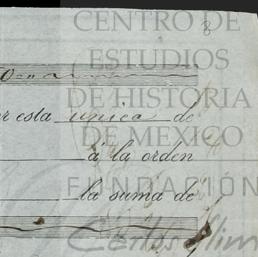 8
CENTRO DE
ESTUDIOS
DE HISTORIA
DE MEXICO
FUNDACIÓN
esta unica de
á la orden
la suma de